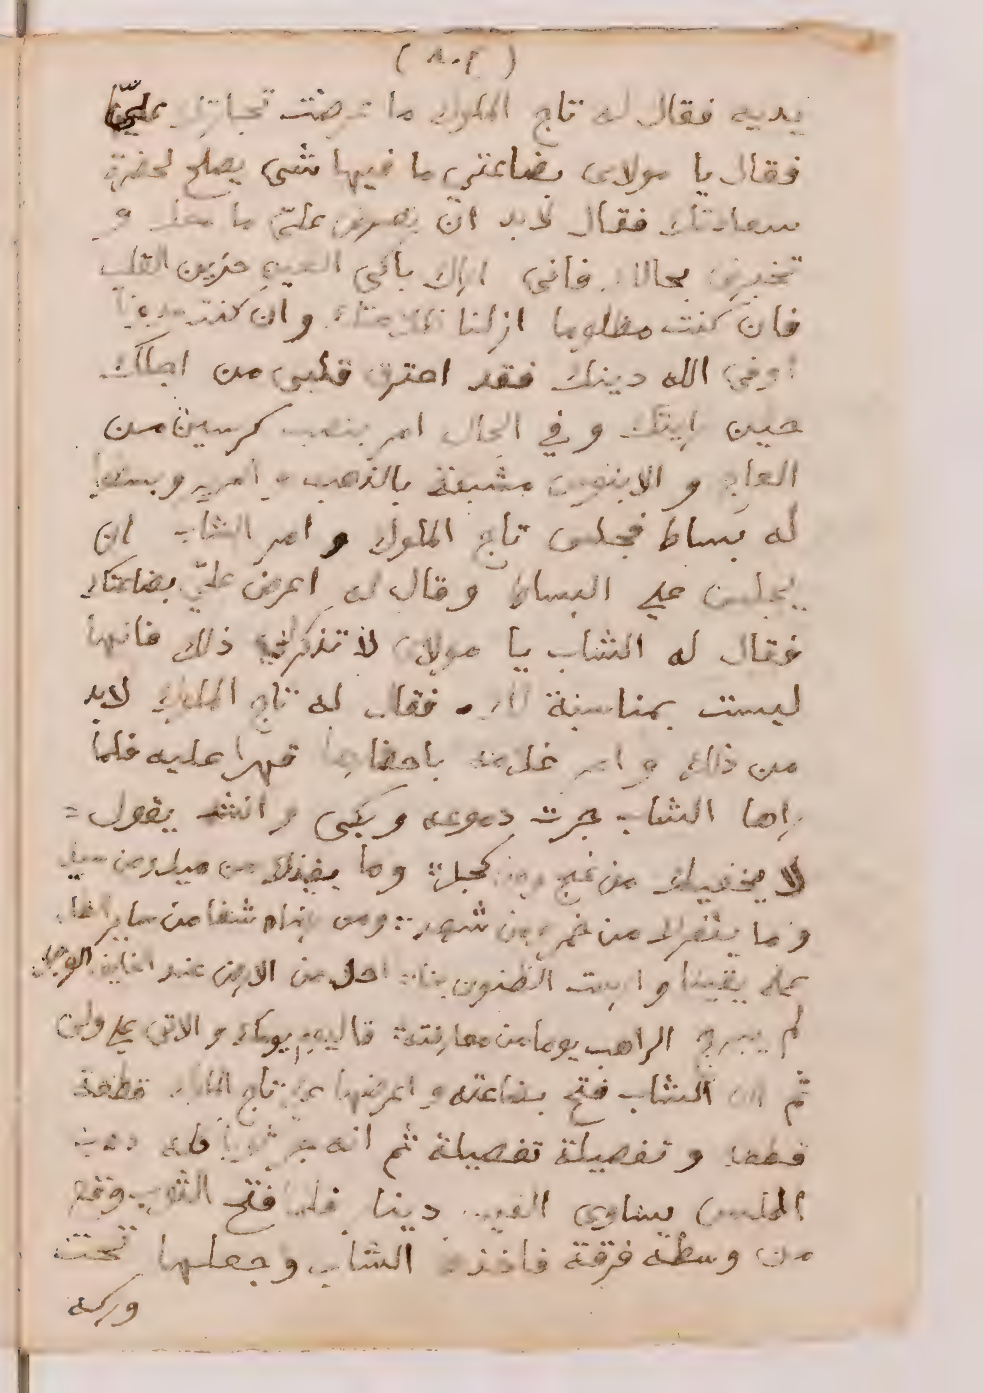 ( ٨٠٢ )
يديه فقال له تاج الملوك ما عرضت تجارتك عليّ
فقال يا مولاى بضاعتي ما فيها شى يصلح لحضرة
سعادتك فقال لابد انّ تعرض عليّ ما معك و
تخبرنى بحالك فانى اراك باكى العين حزين القلب
فان كنت مظلوما ازلنا ظلامتك وان كنت مديونا
اوفى الله دينك فقد احترق قلبى من اجلك
حين رايتك و في الحال امر بنصب كرسين من
العاج و الابنوس مشبعة بالذهب و الحرير وبسطوا
له بساط فجلس تاج الملوك و امر الشاب ان
يجلس علي البساط وقال له اعرض عليّ بضاعتك
فقال له الشاب يا مولاى لا تذكرلي ذلك فانها
ليست بمناسبة لك فقال له تاج الملوك لابد
من ذلك و امر غلامه باحضارها قهرا عليه فلما
راها الشاب جرت دموعه و بكى و انشد يقول =
لا بعينيك من غنج ومن كحل : وما بقدك من ميل ومن ميل
و ما بثغرك من خمر ومن شهد :: ومن
من الامن عند الخايف الوجل
لم يبرح الراهب يوما من
ثم ان الشاب فتح بضاعته و اعرضها على تاج الملوك قطعة
قطعة و تفصيلة تفصيلة ثم انه
الملبس يساوى الفين دينا فلما فتح الثوب وقع
من وسطه فرقة فاخذها الشاب وجعلها تحت
وركه